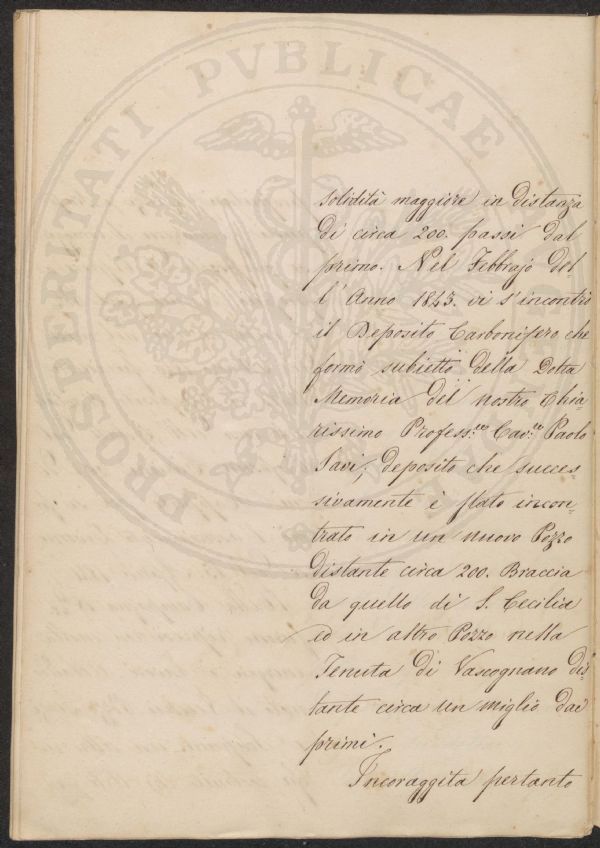 solidità maggiore in distanza
di circa 200. passi dal
primo. Nel Febbrajo del
l'Anno 1843. vi s'incontrò
il Deposito Carbonifero che
formò subietto della Dotta
Memoria del nostro Chia-
rissimo Profess.re Cav.re Paolo
Savi; deposito che succes-
sivamente è stato incon-
trato in un nuovo Pozzo
distante circa 200. Braccia
da quello di S. Cecilia
ed in altro Pozzo nella
Tenuta di Vascognano dis-
tante circa un miglio dai
primi.
Incoraggita pertanto
PROSPERITATI PVBLICAE